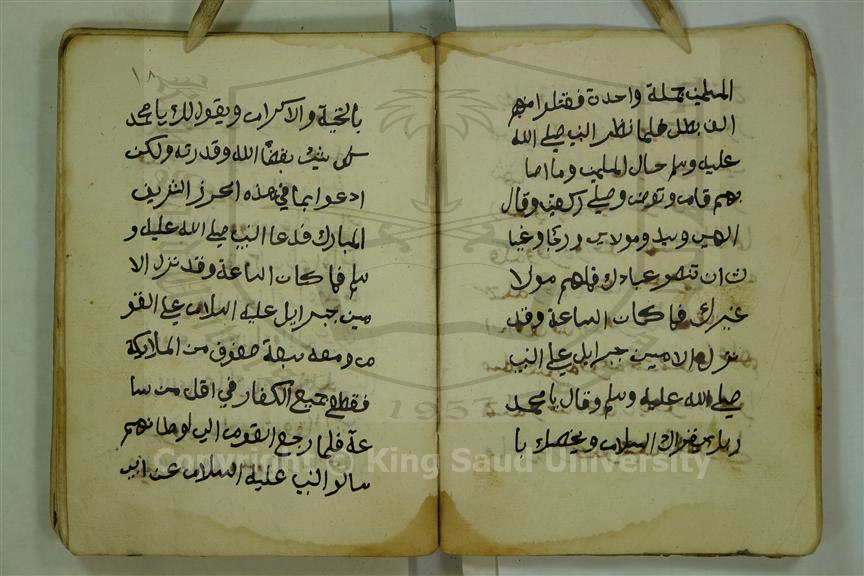 المسلمين حملة واحدة فقتلوا منهم
الف بطل فلما نظر النبي صلى الله
عليه وسلم حال المسلمين وما اصا
بهم قام وتوضى وصلى ركعتين وقال
الهي وسيدي ومولاي ورجاي وغيا
ث ان تنصر عبادك فما لهم مولا
غيرك فما كان الساعة وقد
نزل الامين جبرايل على النبي
صلى الله عليه وسلم وقال يا محمد
ربك يقراك السلام ويخصك با
١٨
بالتحية والاكرام ويقول لك يا محمد
كل شيء بقضا الله وقدرته ولكن
ادعوا بما في هذه الحرز الشريف
المبارك فدعا النبي صلى الله عليه و
سلم فما كان الساعة وقد نزل الا
مين جبرايل عليه السلام على القو
م ومعه سبعة صفوف من الملايكة
فقطع جميع الكفار في اقل من سا
عة فلما رجع القوم الى اوطانهم
سالو النبي عليه السلام عن
Copyright © King Saud University
1957